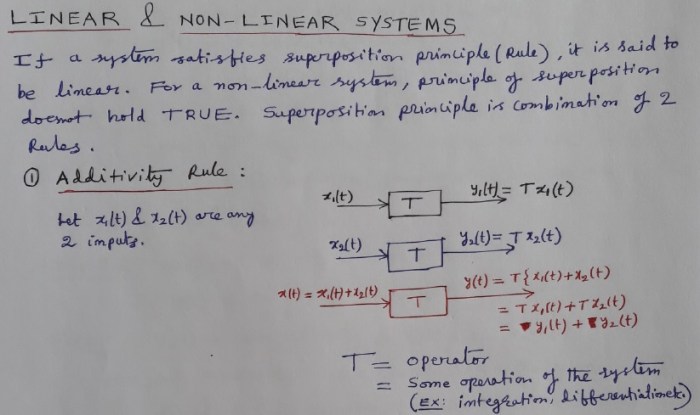 LINEAR & NON-LINEAR SYSTEMS
If a system satisfies superposition principle (Rule), it is said to
be linear. For a non-linear system, principle of superposition
doesnot hold TRUE. Superposition principle is combination of 2
Rules.
① Additivity Rule :
Let x₁(t) & x₂(t) are any
2 inputs.
x₁(t) T y₁(t) = T x₁(t)
x₂(t) T y₂(t) = T x₂(t)
x(t) = x₁(t)+x₂(t) T y(t) = T{x₁(t)+x₂(t)
= T x₁(t) + T x₂(t)
= y₁(t) + y₂(t)
T = operator
= Some operation of the system
(EX: integration, differentiation etc.)